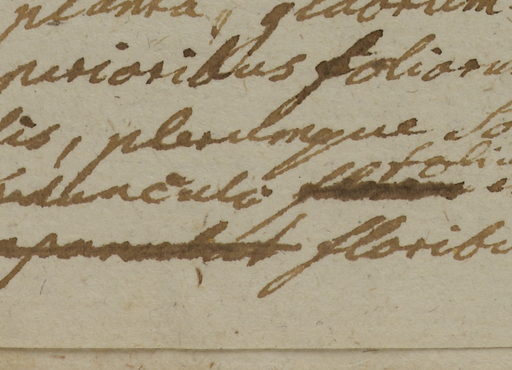 planta, glabrum
purioribus folioru
lis, plerumque so
foliu
pedunculo
floribu